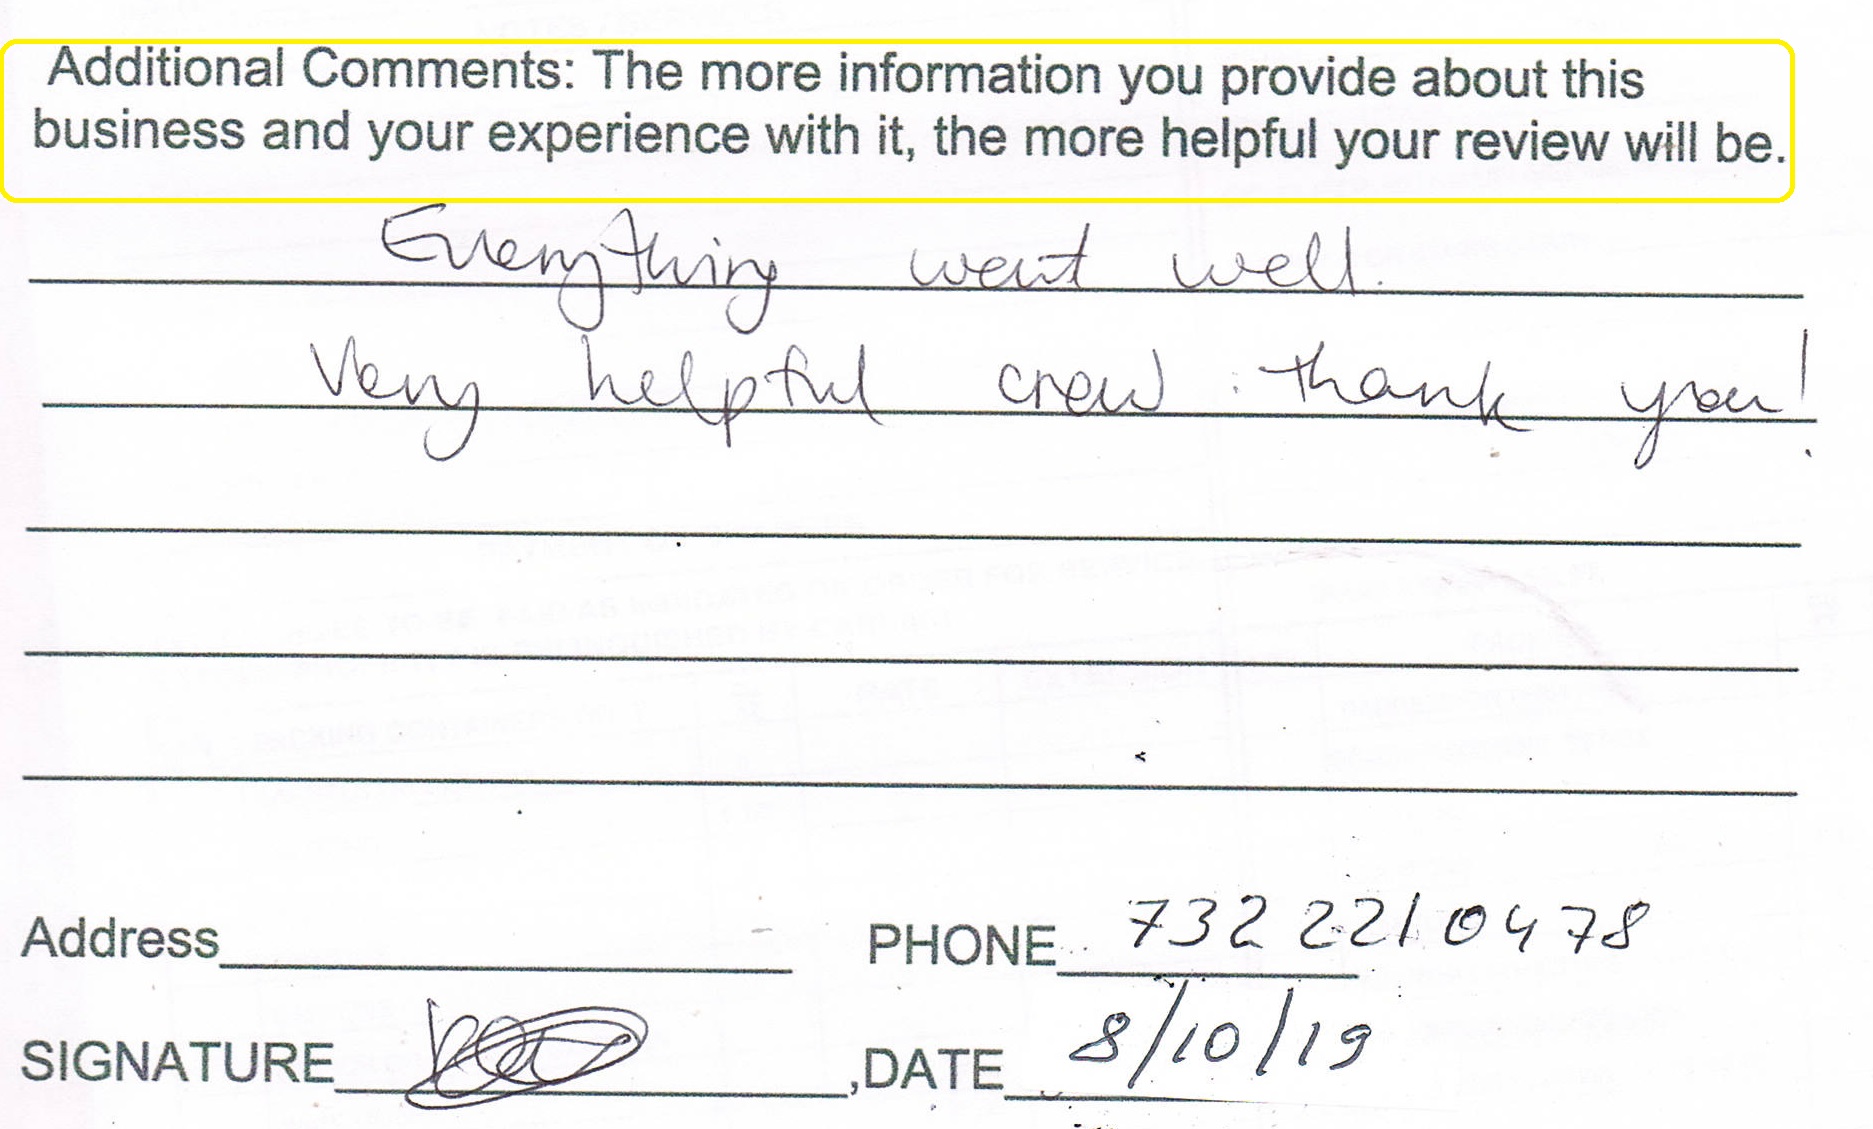 Additional Comments: The more information you provide about this
business and your experience with it, the more helpful your review will be.
Everything went well.
Very helpful crew. thank you!
Address PHONE 732 221 0478
SIGNATURE ,DATE 8/10/19